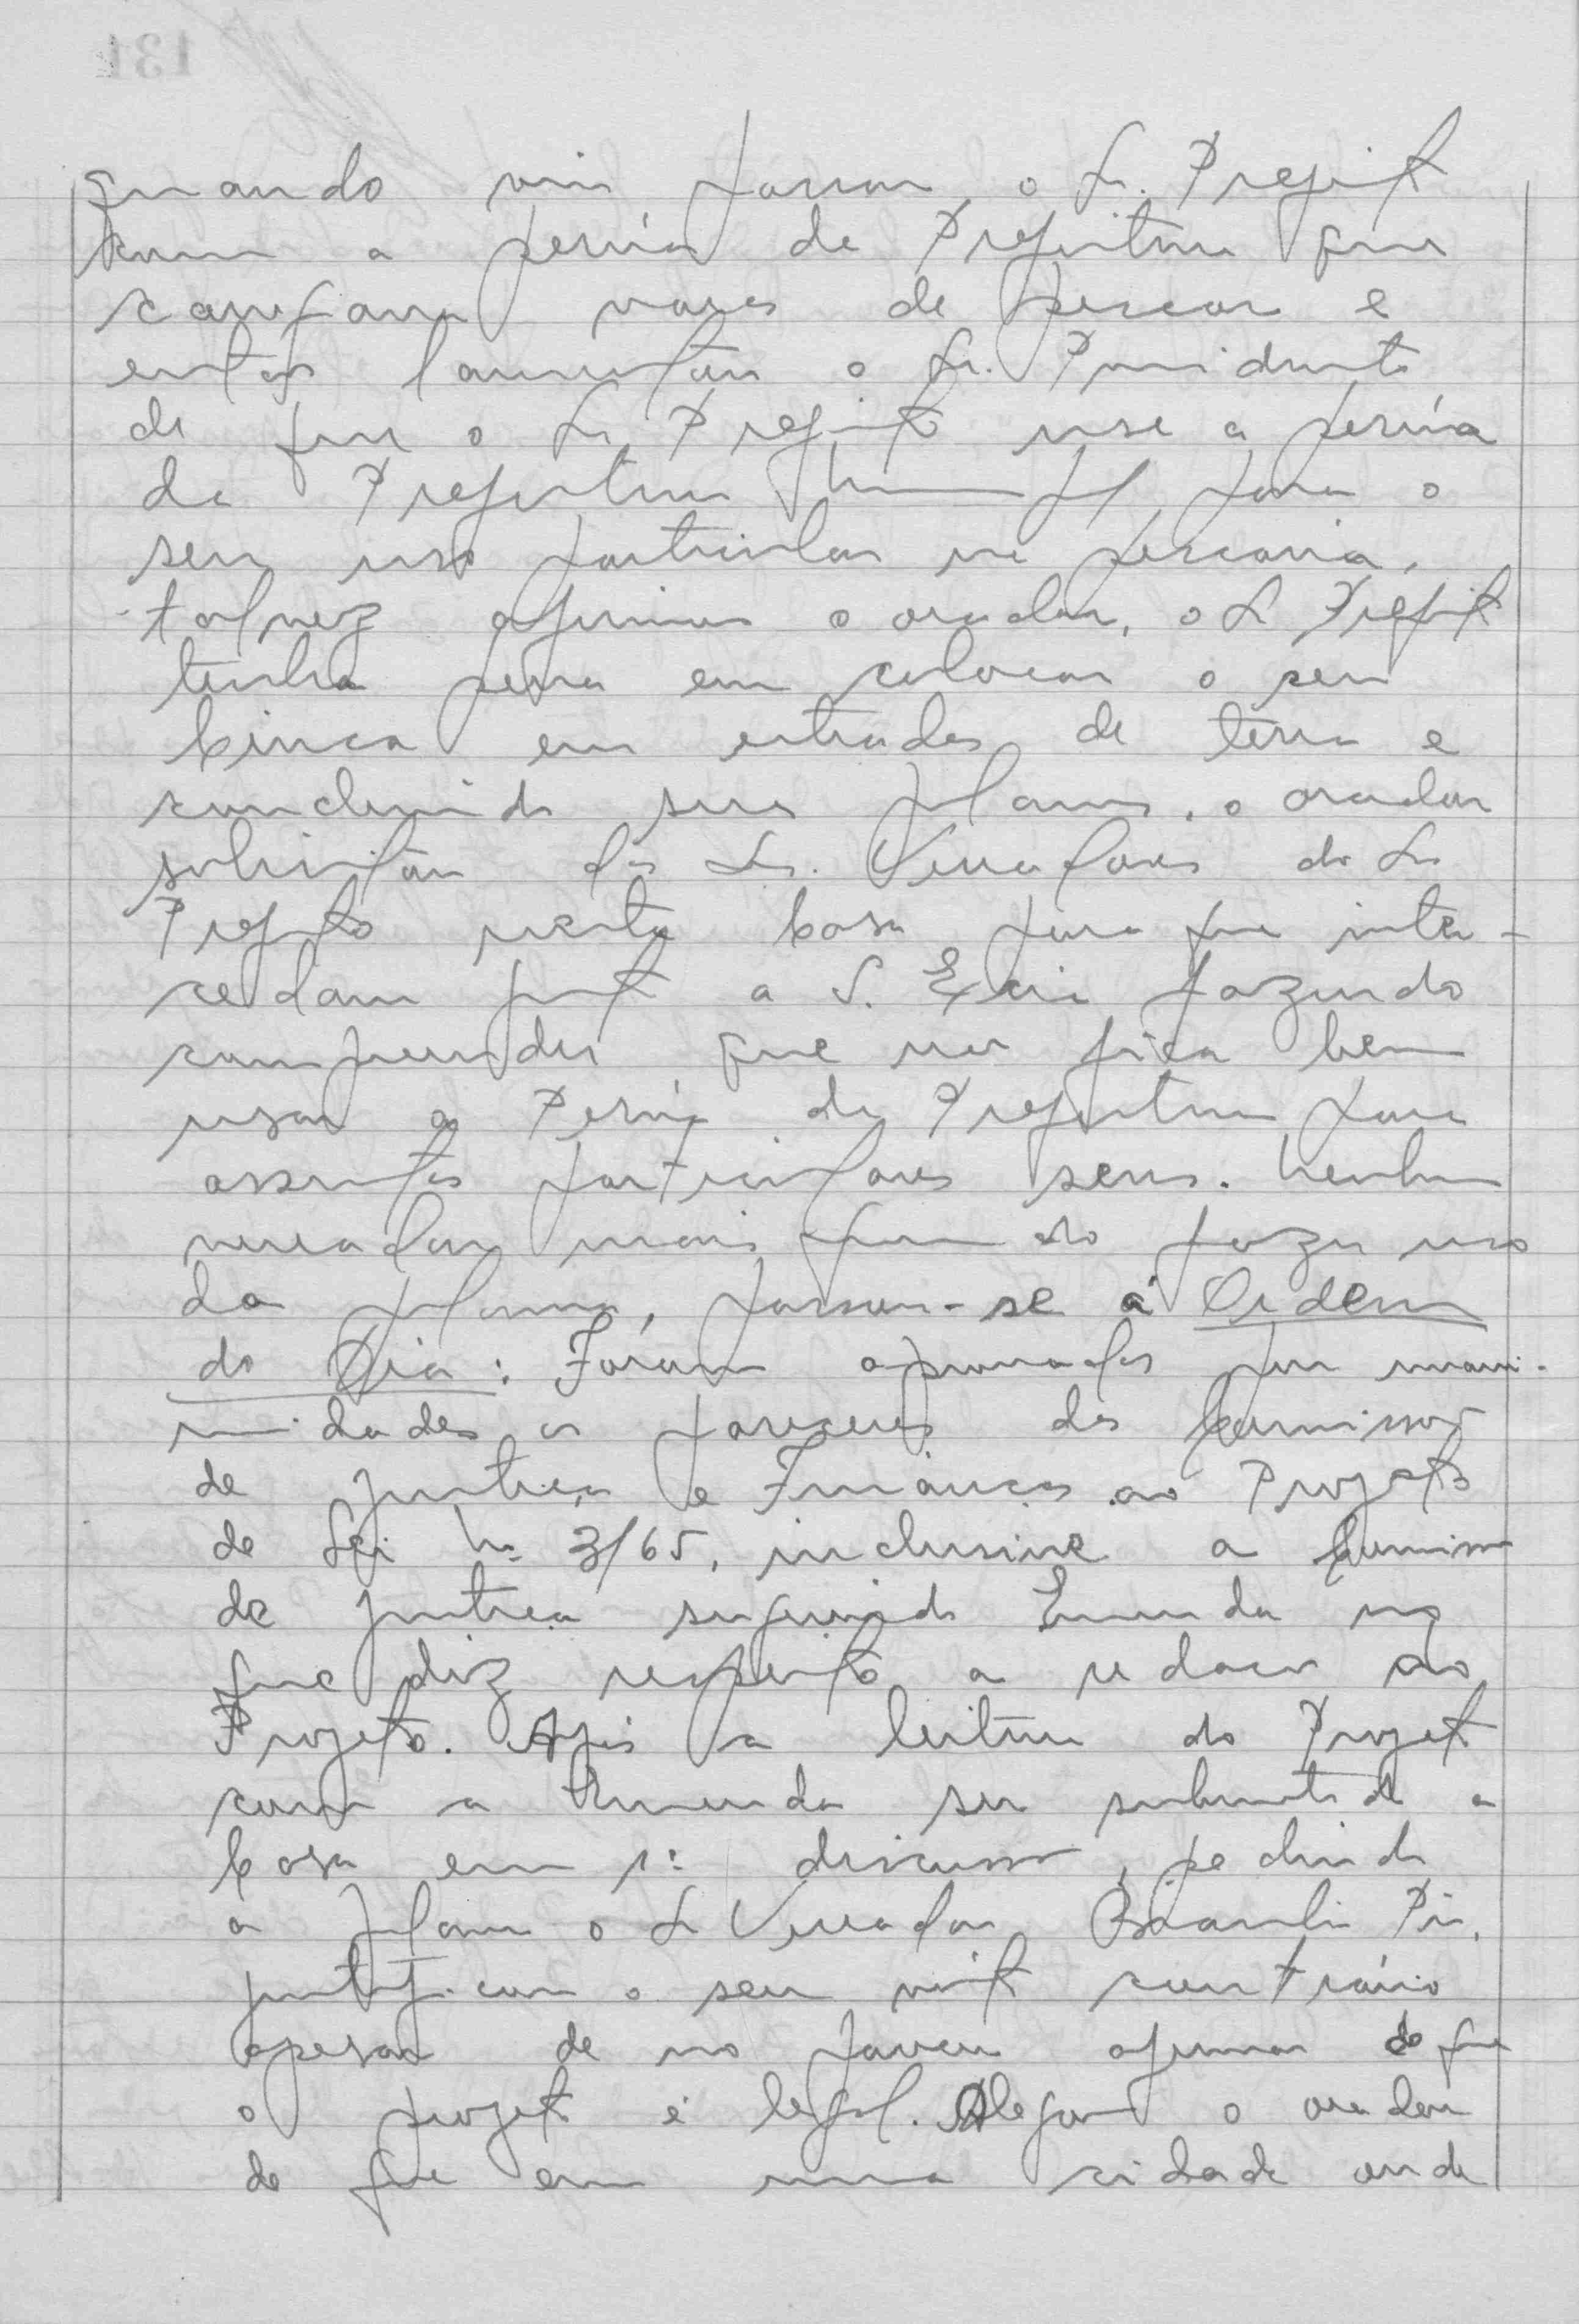 quando viu passar o Sr. Prefeito
com a perúa da Prefeitura que
carregava varas de pescar e
então lamentou o Sr. Presidente
de que o Sr. Prefeito use a perúa
da Prefeitura para o
seu uso particular na pescaria,
talvez afirmou o orador, o Sr Prefeito
tenha pena em colocar o seu
Simca em estradas de terra e
concluindo sua palavra, o orador
solicitou dos Srs. Vereadores do Sr
Prefeito nesta Casa para que inter-
cedam junto a S. Excia fazendo
compreender que não fica bem
usar a Perúa da Prefeitura para
assuntos particulares seus. Nenhum
vereador mais querendo fazer uso
da palavra, passou-se á Ordem
do Dia: Foram aprovados por unani-
midades os pareceres das Comissões
de Justiça e Finanças ao Projeto
de Lei Nº 3/65, inclusive a Comissão
de Justiça sugerindo Emenda no
que diz respeito a redação do
Projeto. Após a leitura do Projeto
com a Emenda ser submetida a
Casa em 1ª discussão, pedindo
a palavra o Sr Vereador Pio,
justificou o seu voto contrário
apesar de no parecer afirmar de que
o projeto é legal. Alegou o orador
de que em uma cidade onde